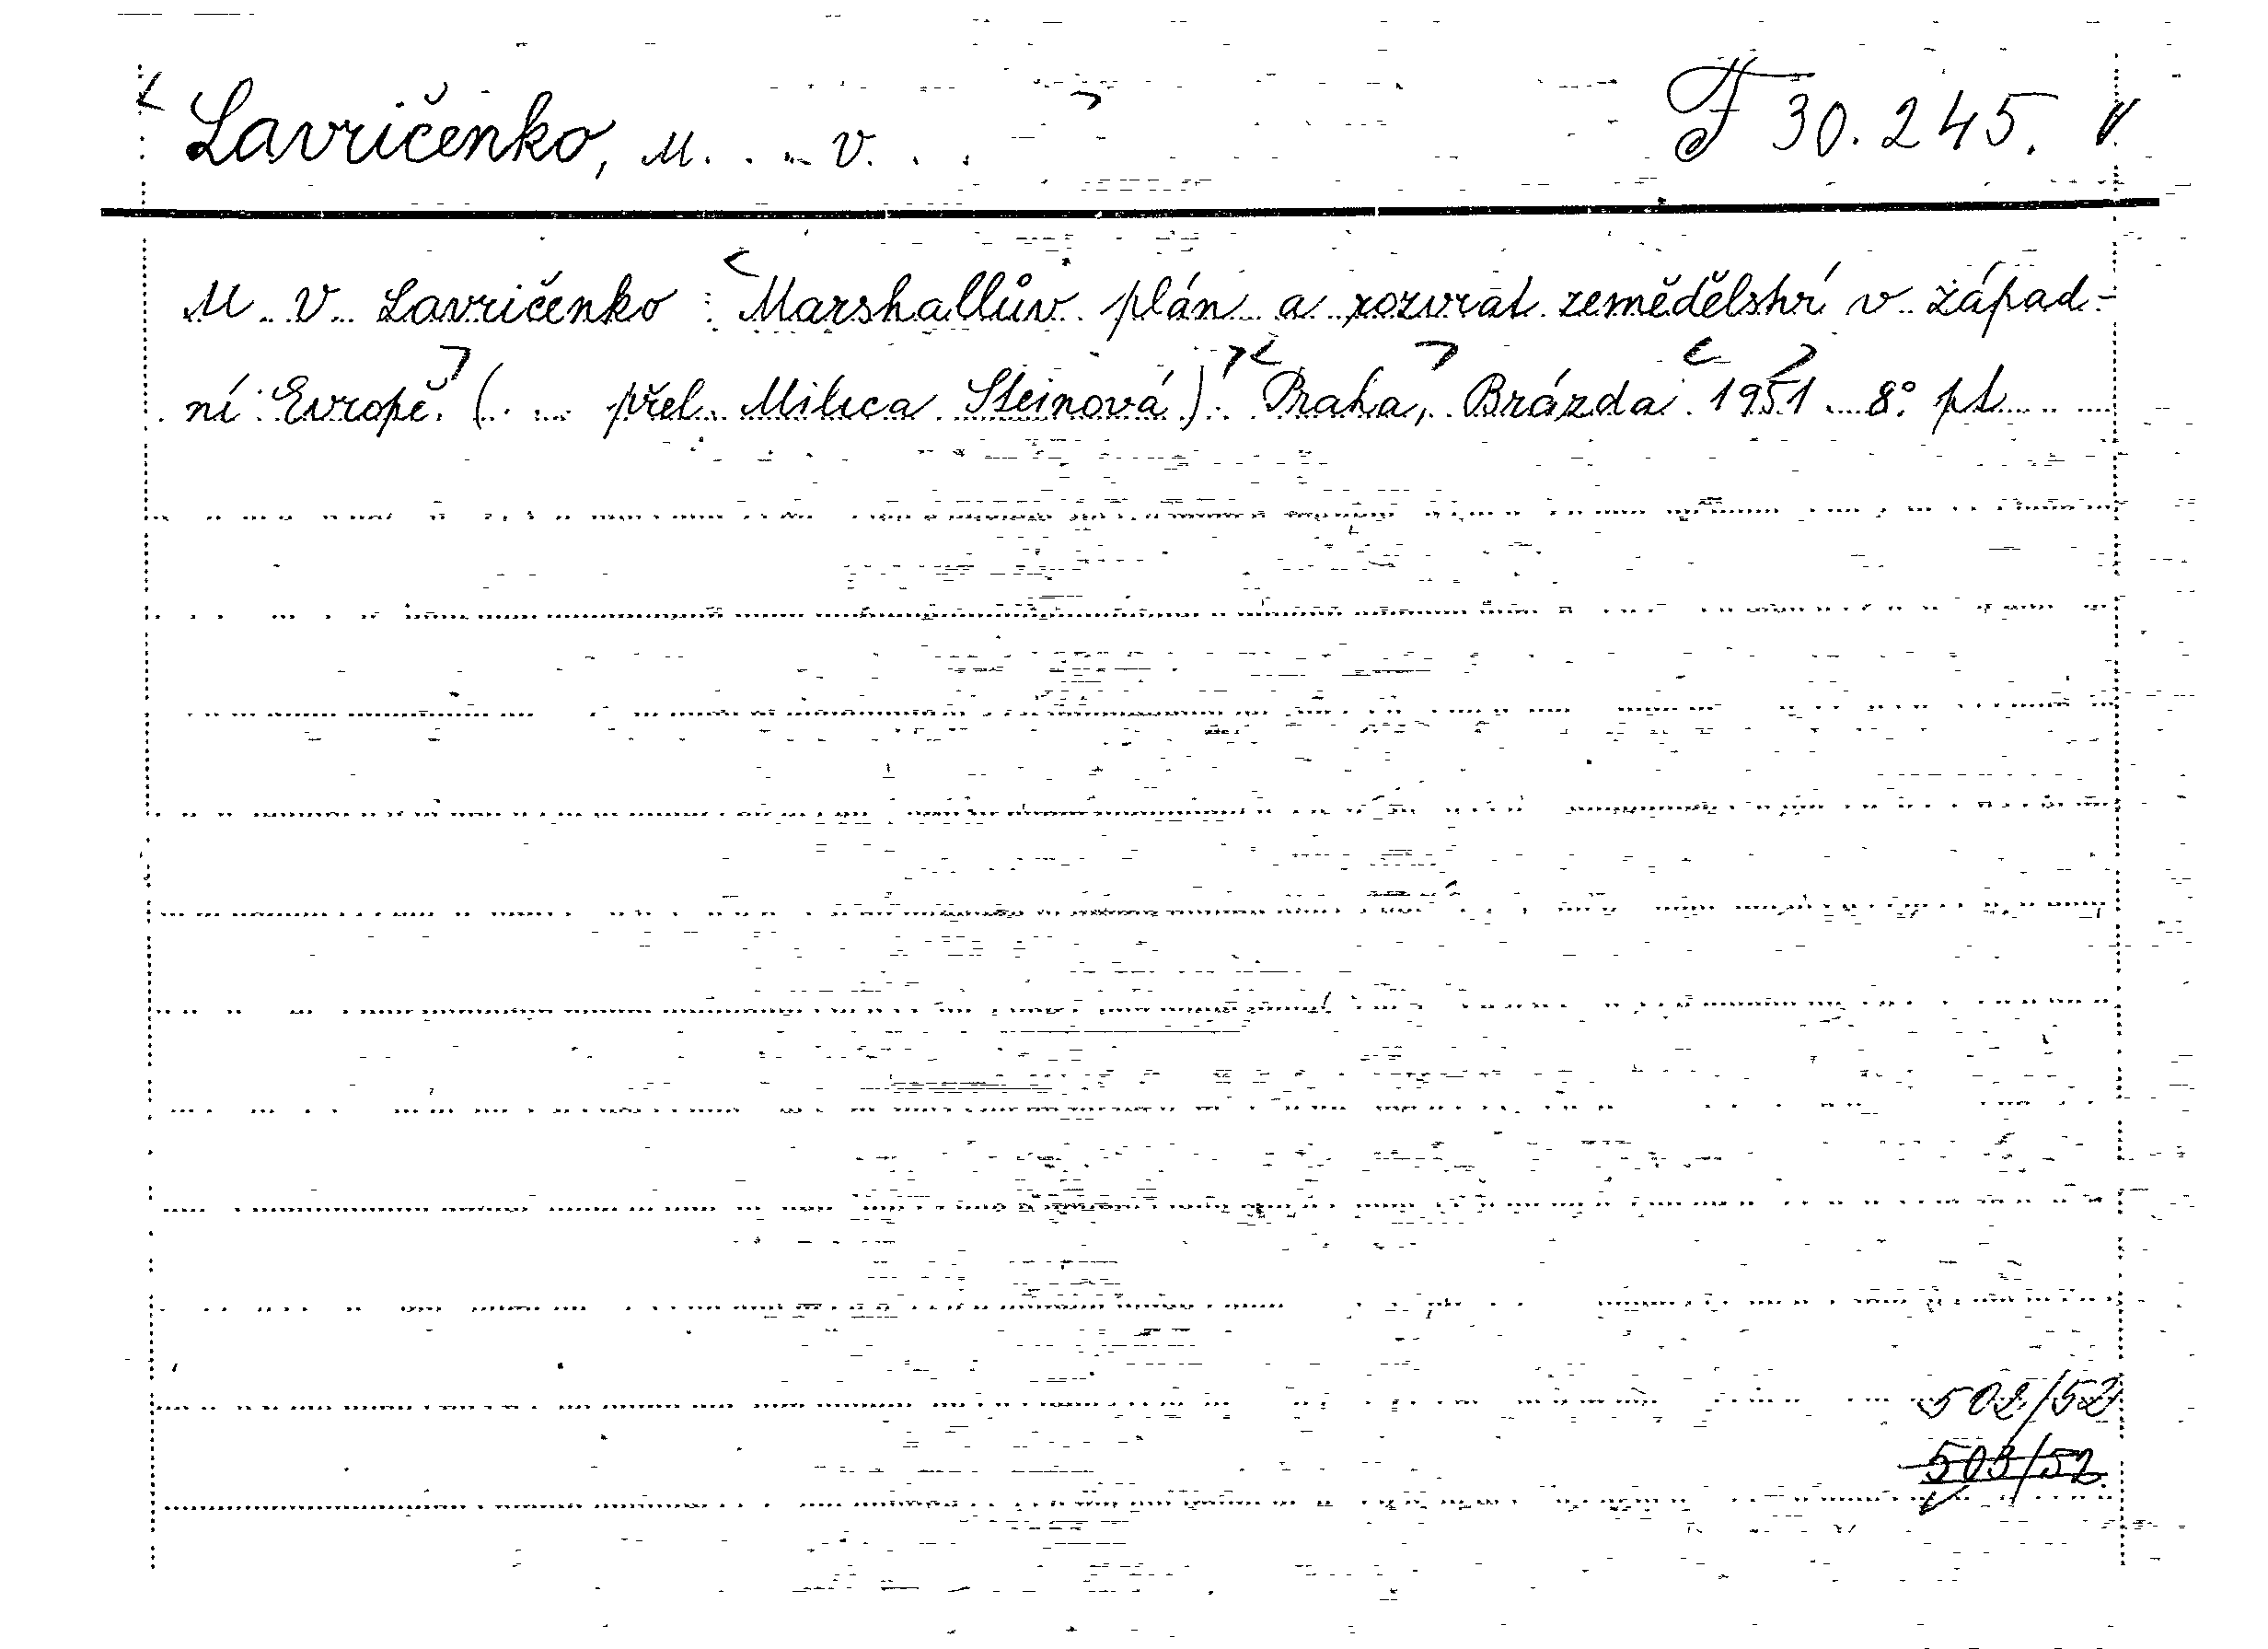 Lavričenko, M. . . . V. . . F 30.245.
M. V. Lavričenko : Marshallův plán a rozvrat zemědělství v západ-
ní Evropě. (. ... přel. Milica Steinová). Praha, Brázda 1951. 8° pt.
502/52
503/52